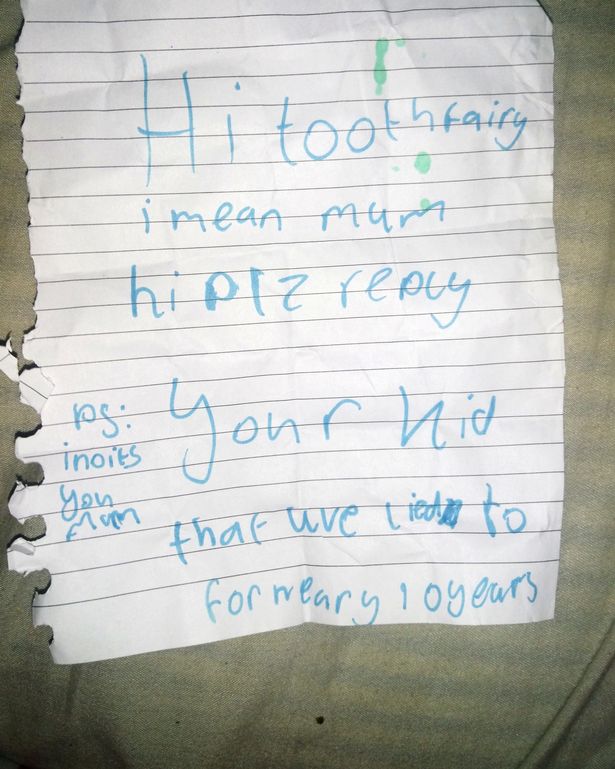 Hi toothfairy
i mean mum
hi plz reply
Your kid
that uve lied to
for neary 10 years
ps:
i no its
you
mum